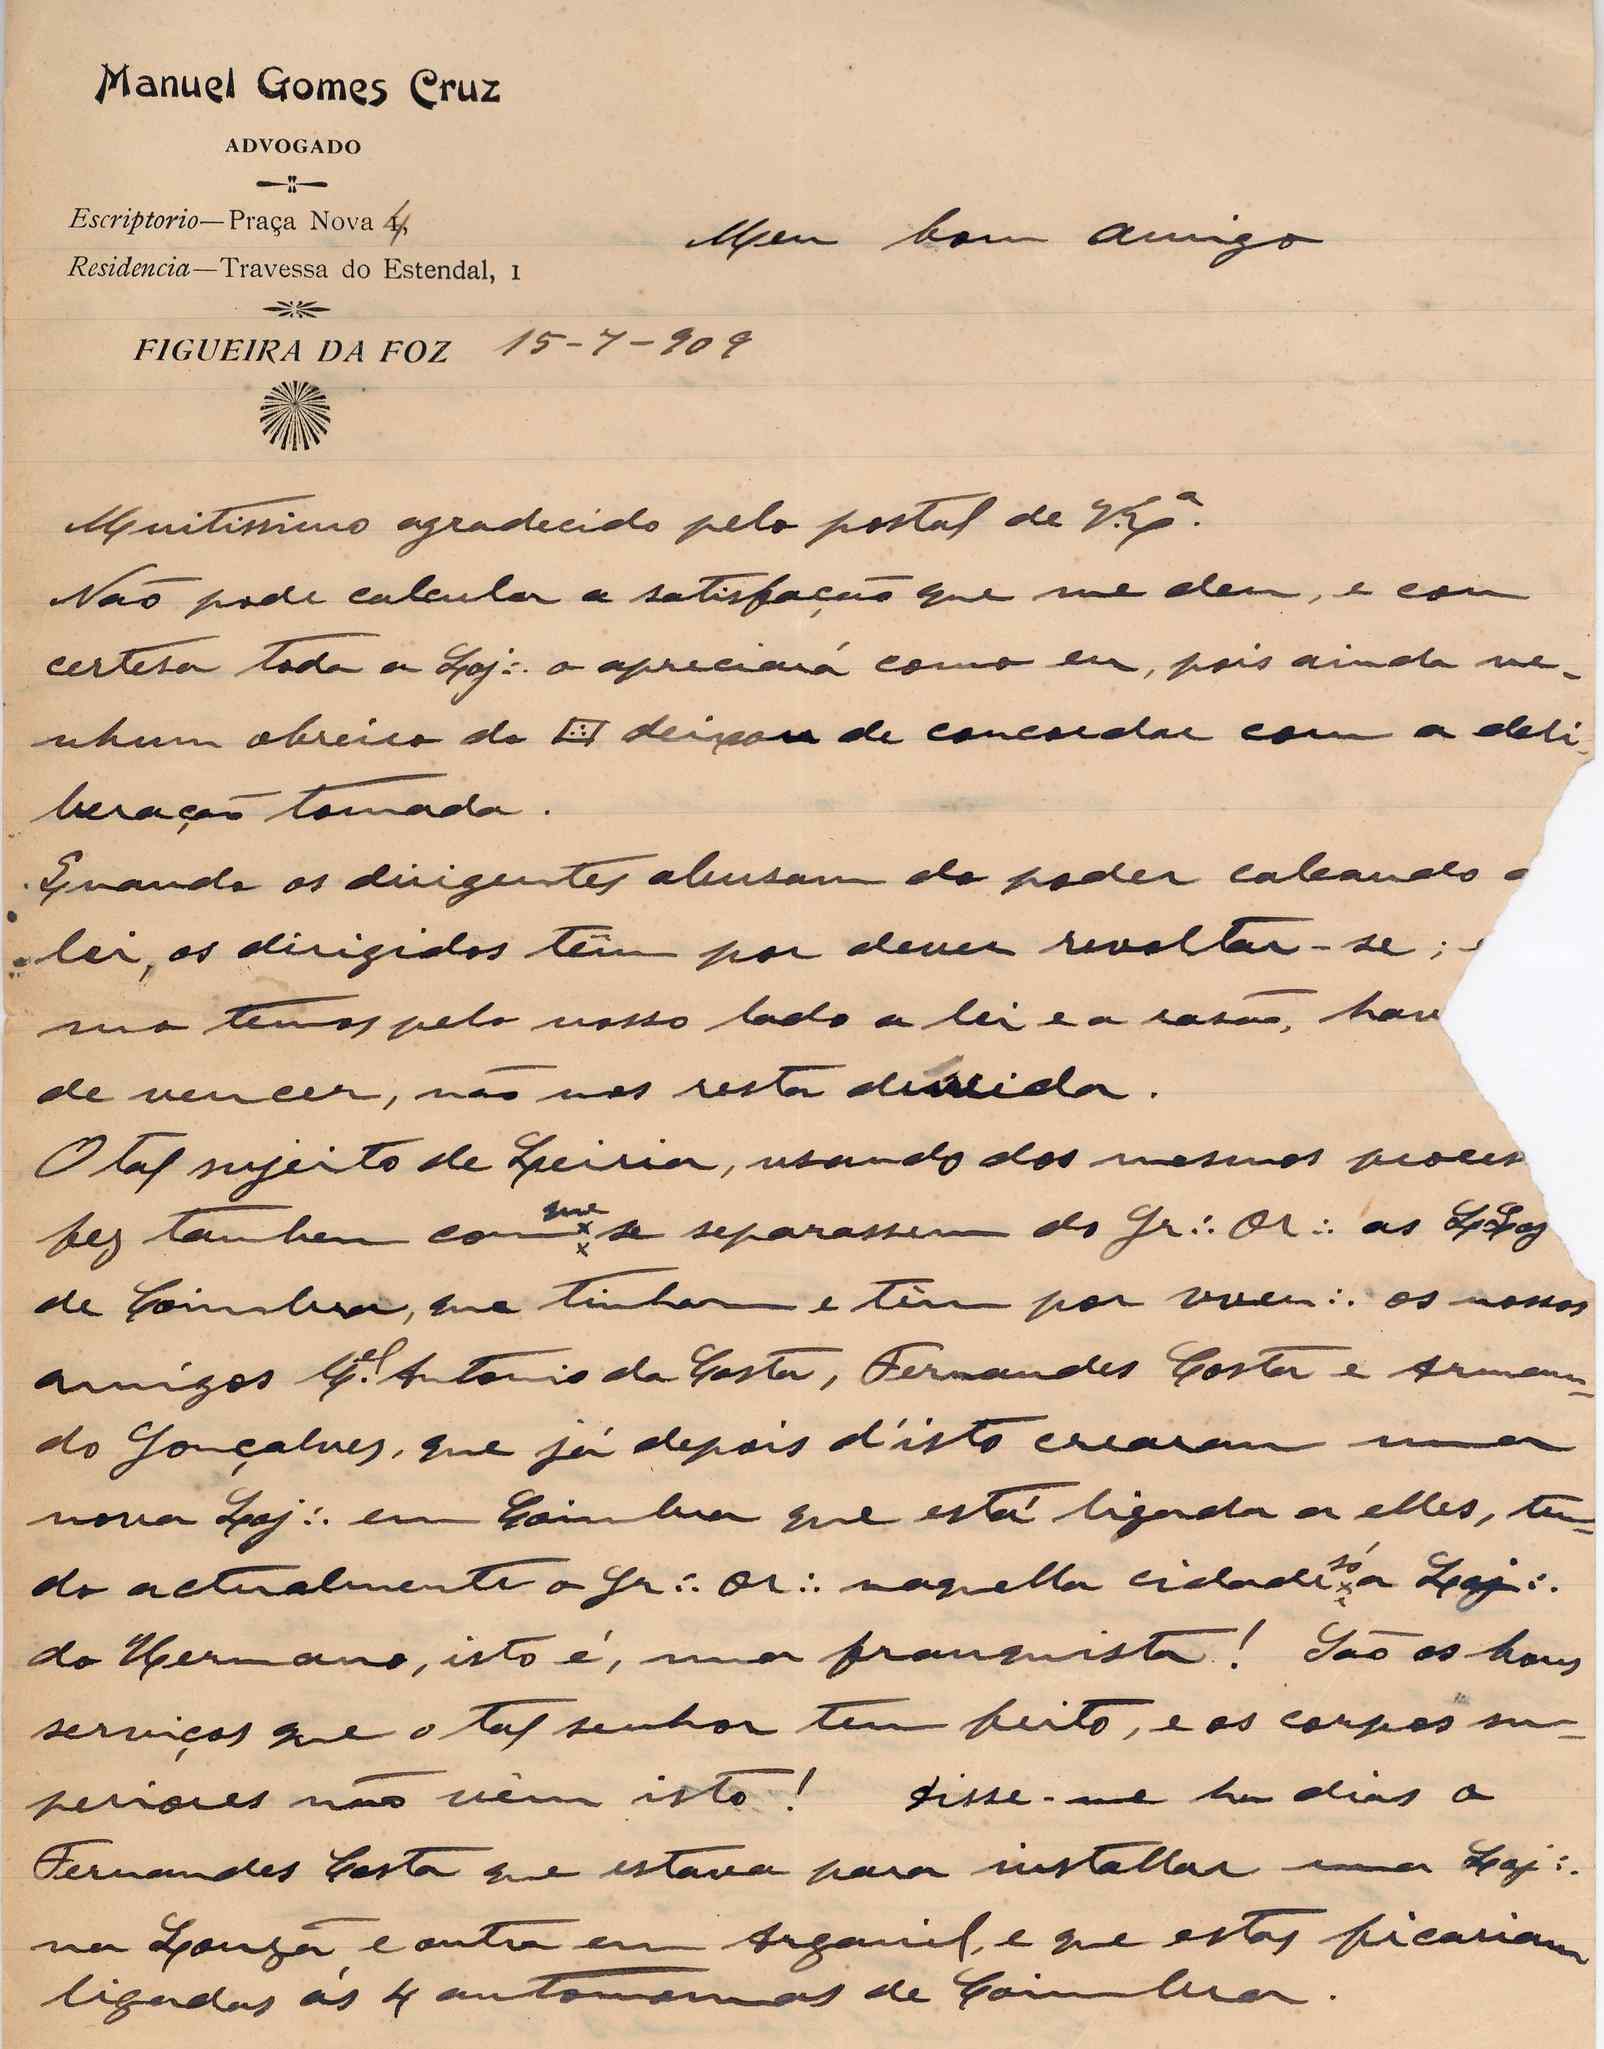 Manuel Gomes Cruz
ADVOGADO
Escriptorio—Praça Nova 4
Residencia—Travessa do Estendal, 1
FIGUEIRA DA FOZ 15-7-909
Meu bom amigo
Muitissimo agradecido pelo postal de V. Ex.ª
Não pode calcular a satisfação que me deu, e com
certesa toda a Loj∴ o apreciará como eu, pois ainda ne-
nhum obreiro da deixou de concordar com a deli-
beração tomada.
Quando os dirigentes abusam do poder calcando a
lei, os dirigidos têm por dever revoltar-se;
mo temos pelo nosso lado a lei e a rasão, hav
de vencer, não nos resta duvida.
O tal sujeito de Leiria, usando dos mesmos proces
fez tambem com que se separassem do Gr∴ Or∴ as LLoj
de Coimbra, que tinham e têm por vven∴ os nossos
amigos G.el Antonio da Costa, Fernandes Costa e Arman-
do Gonçalves, que já depois d'isto crearam uma
nova Loj∴ em Coimbra que está ligada a elles, ten-
do actualmente o Gr∴ Or∴ naquella cidade só a Loj∴
do Hermano, isto é, uma franquista! São os bons
serviços que o tal senhor tem feito, e os corpos su-
periores não vêem isto! Disse-me ha dias o
Fernandes Costa que estava para installar uma Loj∴
na Louzã e outra em Arganil, e que estas ficariam
ligadas ás 4 autonomas de Coimbra.